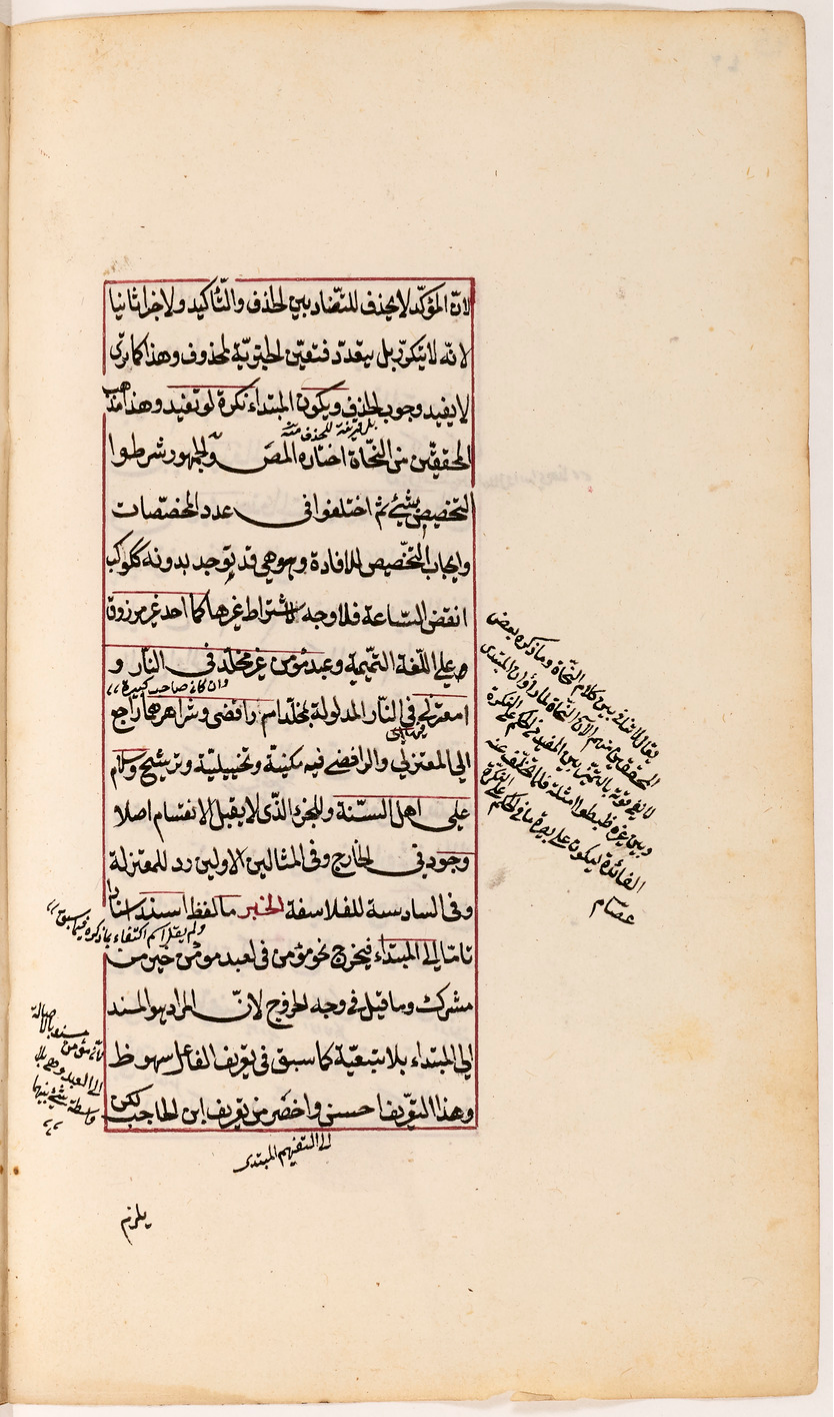 لانّ المؤكّد لا يحذف للتضاد بين الحذف والتّأكيد ولا خبرا ثانيا
لانّه لا يتكرّر بل يتعدّد فتعيّن الخبريّة لمحذوف وهذا كما ترى
لا يفيد وجوب الحذف ويكون المبتداء نكرة لو تفيد وهذا مذهب
بل قرينة للحذف منه
المحققين من النّحاة اختاره المصّ والجمهور شرطوا
التخصيص بشئ ثم اختلفوا فى عدد المخصّصات
وايجاب التّخصيص للافادة وهو هى قد توجد بدونه ككوكب
انقض السّاعة فلا وجه لاشتراط غيرها كما احد غير مرزوق
على اللّغة التّميمية وعبد مؤمن غير مخلّد فى النار و
وان كان صاحب كبيرة
امعتزلى فى النار المدلولة بمخلّد ام رافضى وشر اهر هما راجع
الى المعتزلى والرافضى فيه مكنية وتخييلية وترشيح وسلام
على اهل السّنة وللجزء الذى لا يقبل الانقسام اصلا
وجود فى الخارج وفى المثالين الاولين رد للمعتزلة
وفى السادسة للفلاسفة الخبر ما لفظ اسند اسنادا
ولم يقل اسم اكتفاء بما ذكره فيما سبق
تامّا الى المبتداء فيخرج نحو مؤمن فى لعبد مؤمن خير من
مشرك وما قيل فى وجه الخروج لانّ المراد هو المسند
الى المبتداء بلا تبعيّة كما سبق فى تعريف الفاعل سهو ظ
وهذا التعريف احسن واخصر من تعريف ابن الحاجب لكن
الى التفهيم المبتدى
يلزم
يقال لا تنافى بين كلام النّحاة وما ذكره بعض
المحققين منهم لان النّحاة لما رأوا ان المبتدى
لا يفى قوته بالتميّز بين المفيد فى الحكم على النكرة
وبين غيره ضبطوا امثلة فالمتخلّف عنه
الفائدة ليكون على بصيرة ما فى الحكم على النكرة
عصام
لانّ مؤمن مسند بالاصالة
الى العبد وهى بلا
واسطة شئ بينهما